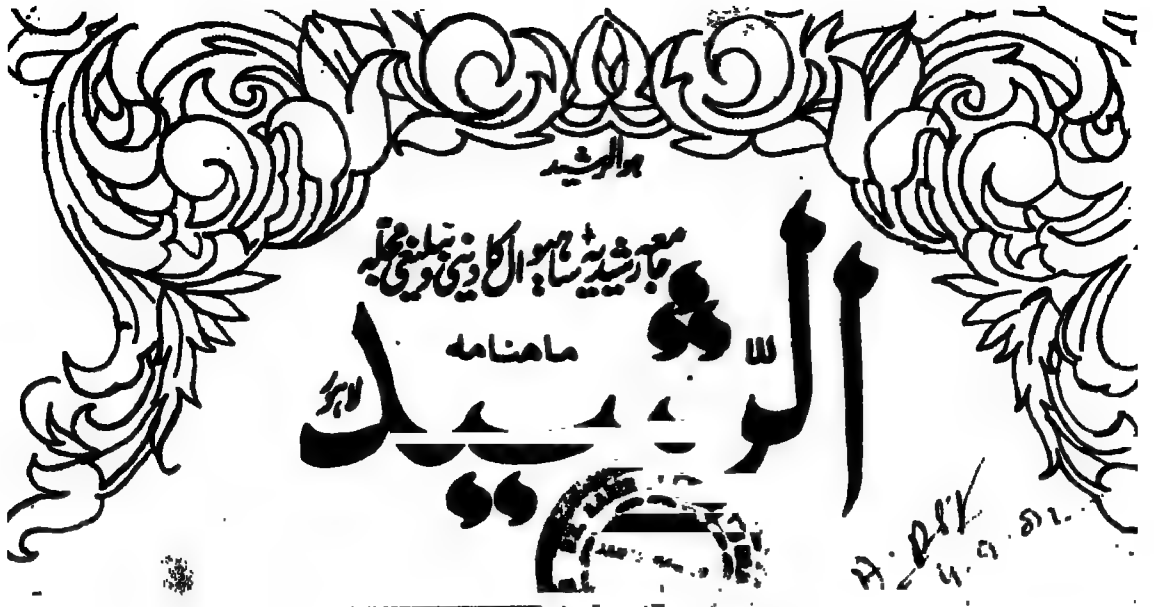 ہوالرشید
جامعہ رشیدیہ ساہیوال کا دینی و تبلیغی مجلہ
ماہنامہ
الرشید
لاہور